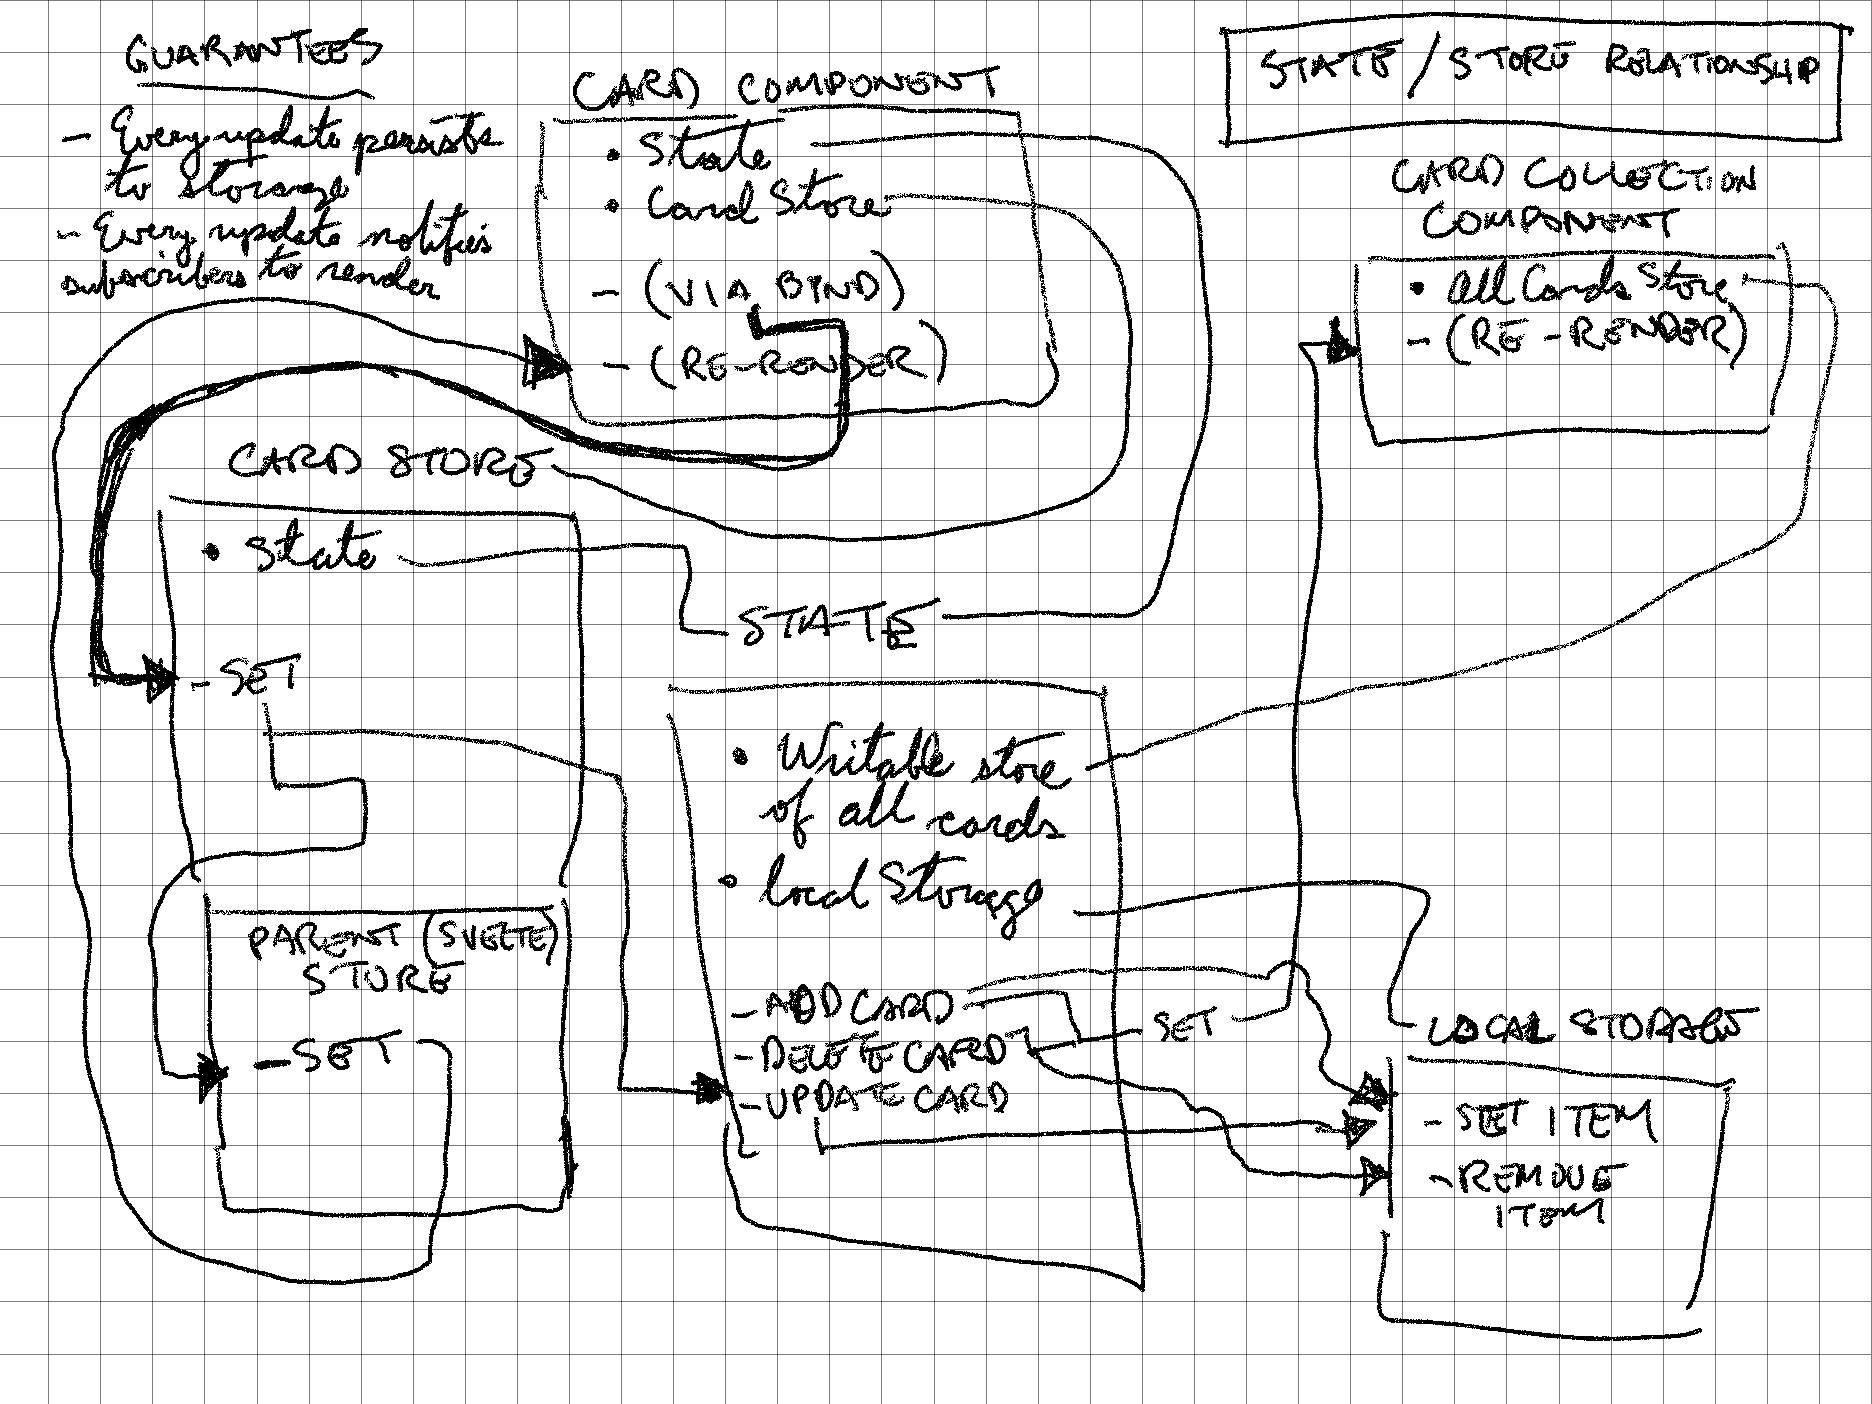 GUARANTEES
- Every update persists
to storage
- Every update notifies
subscribers to render
CARD COMPONENT
• State
• Card Store
- (VIA BIND)
- (RE-RENDER)
STATE / STORE RELATIONSHIP
CARD COLLECTION
COMPONENT
• all Cards Store
- (RE-RENDER)
CARD STORE
• State
- SET
PARENT (SVELTE)
STORE
- SET
STATE
• Writable store
of all cards
• local Storage
- ADD CARD
- DELETE CARD
- UPDATE CARD
SET
LOCAL STORAGE
- SET ITEM
- REMOVE
ITEM